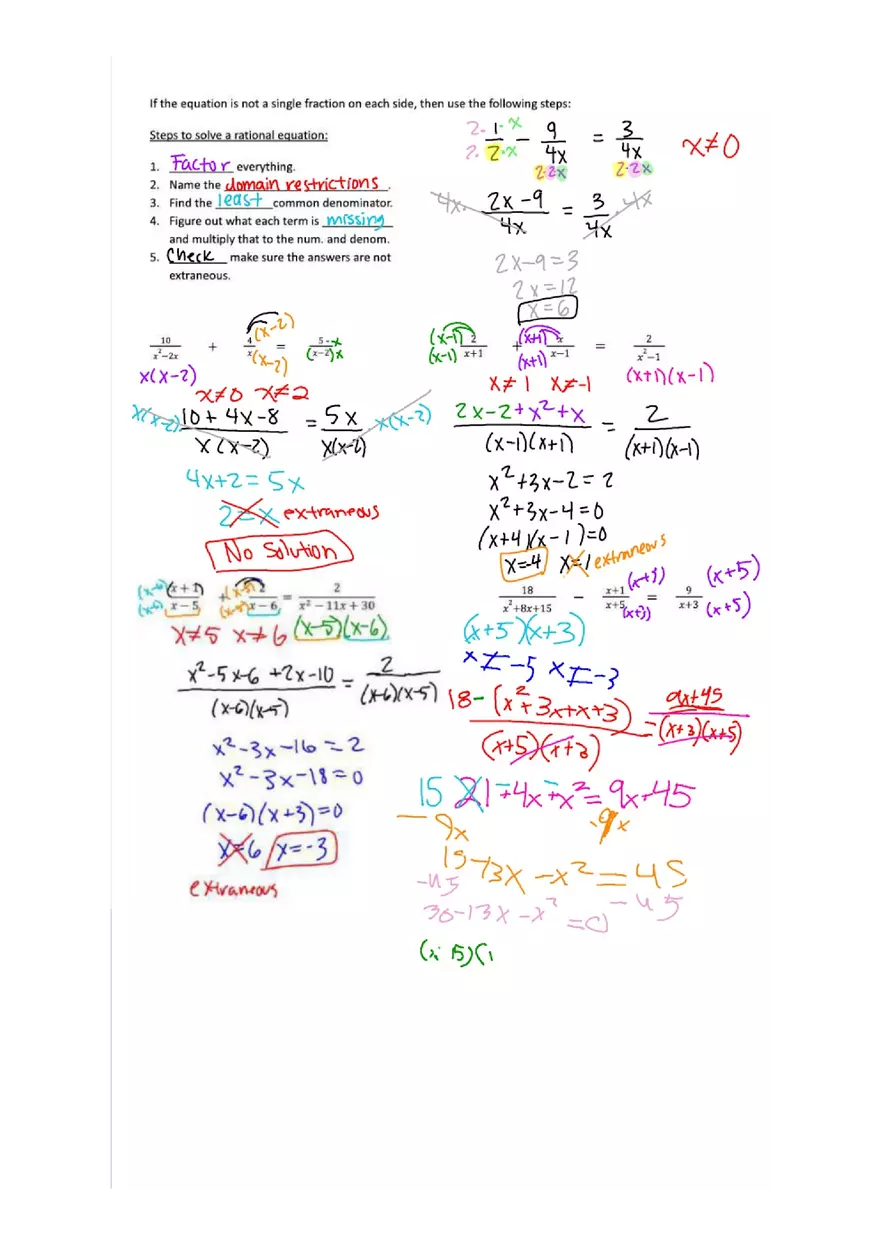 If the equation is not a single fraction on each side, then use the following steps:
Steps to solve a rational equation:
1. Factor everything.
2. Name the domain restrictions.
3. Find the least common denominator.
4. Figure out what each term is missing
and multiply that to the num. and denom.
5. Check make sure the answers are not
extraneous.
2· 1·x / 2· 2·x − 9 / 4x = 3 / 4x x≠0
2·2x 2·2x
4x· 2x-9 / 4x = 3 / 4x ·4x
2x-9=3
2x=12
x=6
10 / x²−2x + 4(x-2) / x(x-2) = 5·x / (x−2)x
x(x-2)
x≠0 x≠2
x(x-2) 10+4x-8 / x(x-2) = 5x / x(x-2) x(x-2)
4x+2=5x
2=x extraneous
No Solution
(x-1) 2 / (x-1) x+1 + (x+1) x / (x+1) x−1 = 2 / x²−1
(x+1)(x-1)
x≠1 x≠-1
2x-2+x²+x / (x-1)(x+1) = 2 / (x+1)(x-1)
x²+3x-2=2
x²+3x-4=0
(x+4)(x-1)=0
x=-4 x=1 extraneous
(x-6)(x+1) / (x-6) x−5 + (x-5) 2 / (x-5) x−6 = 2 / x²−11x+30
x≠5 x≠6 (x-5)(x-6)
x²-5x-6+2x-10 / (x-6)(x-5) = 2 / (x-6)(x-5)
x²-3x-16=2
x²-3x-18=0
(x-6)(x+3)=0
x=6 x=-3
extraneous
18 / x²+8x+15 − x+1 (x+3) / x+5 (x+3) = 9 (x+5) / x+3 (x+5)
(x+5)(x+3)
x≠-5 x≠-3
18-(x²+3x+x+3) / (x+5)(x+3) = 9x+45 / (x+3)(x+5)
15 21-4x-x²=9x+45
-9x -9x
15-13x-x²=45
-45 -45
30-13x-x²=0